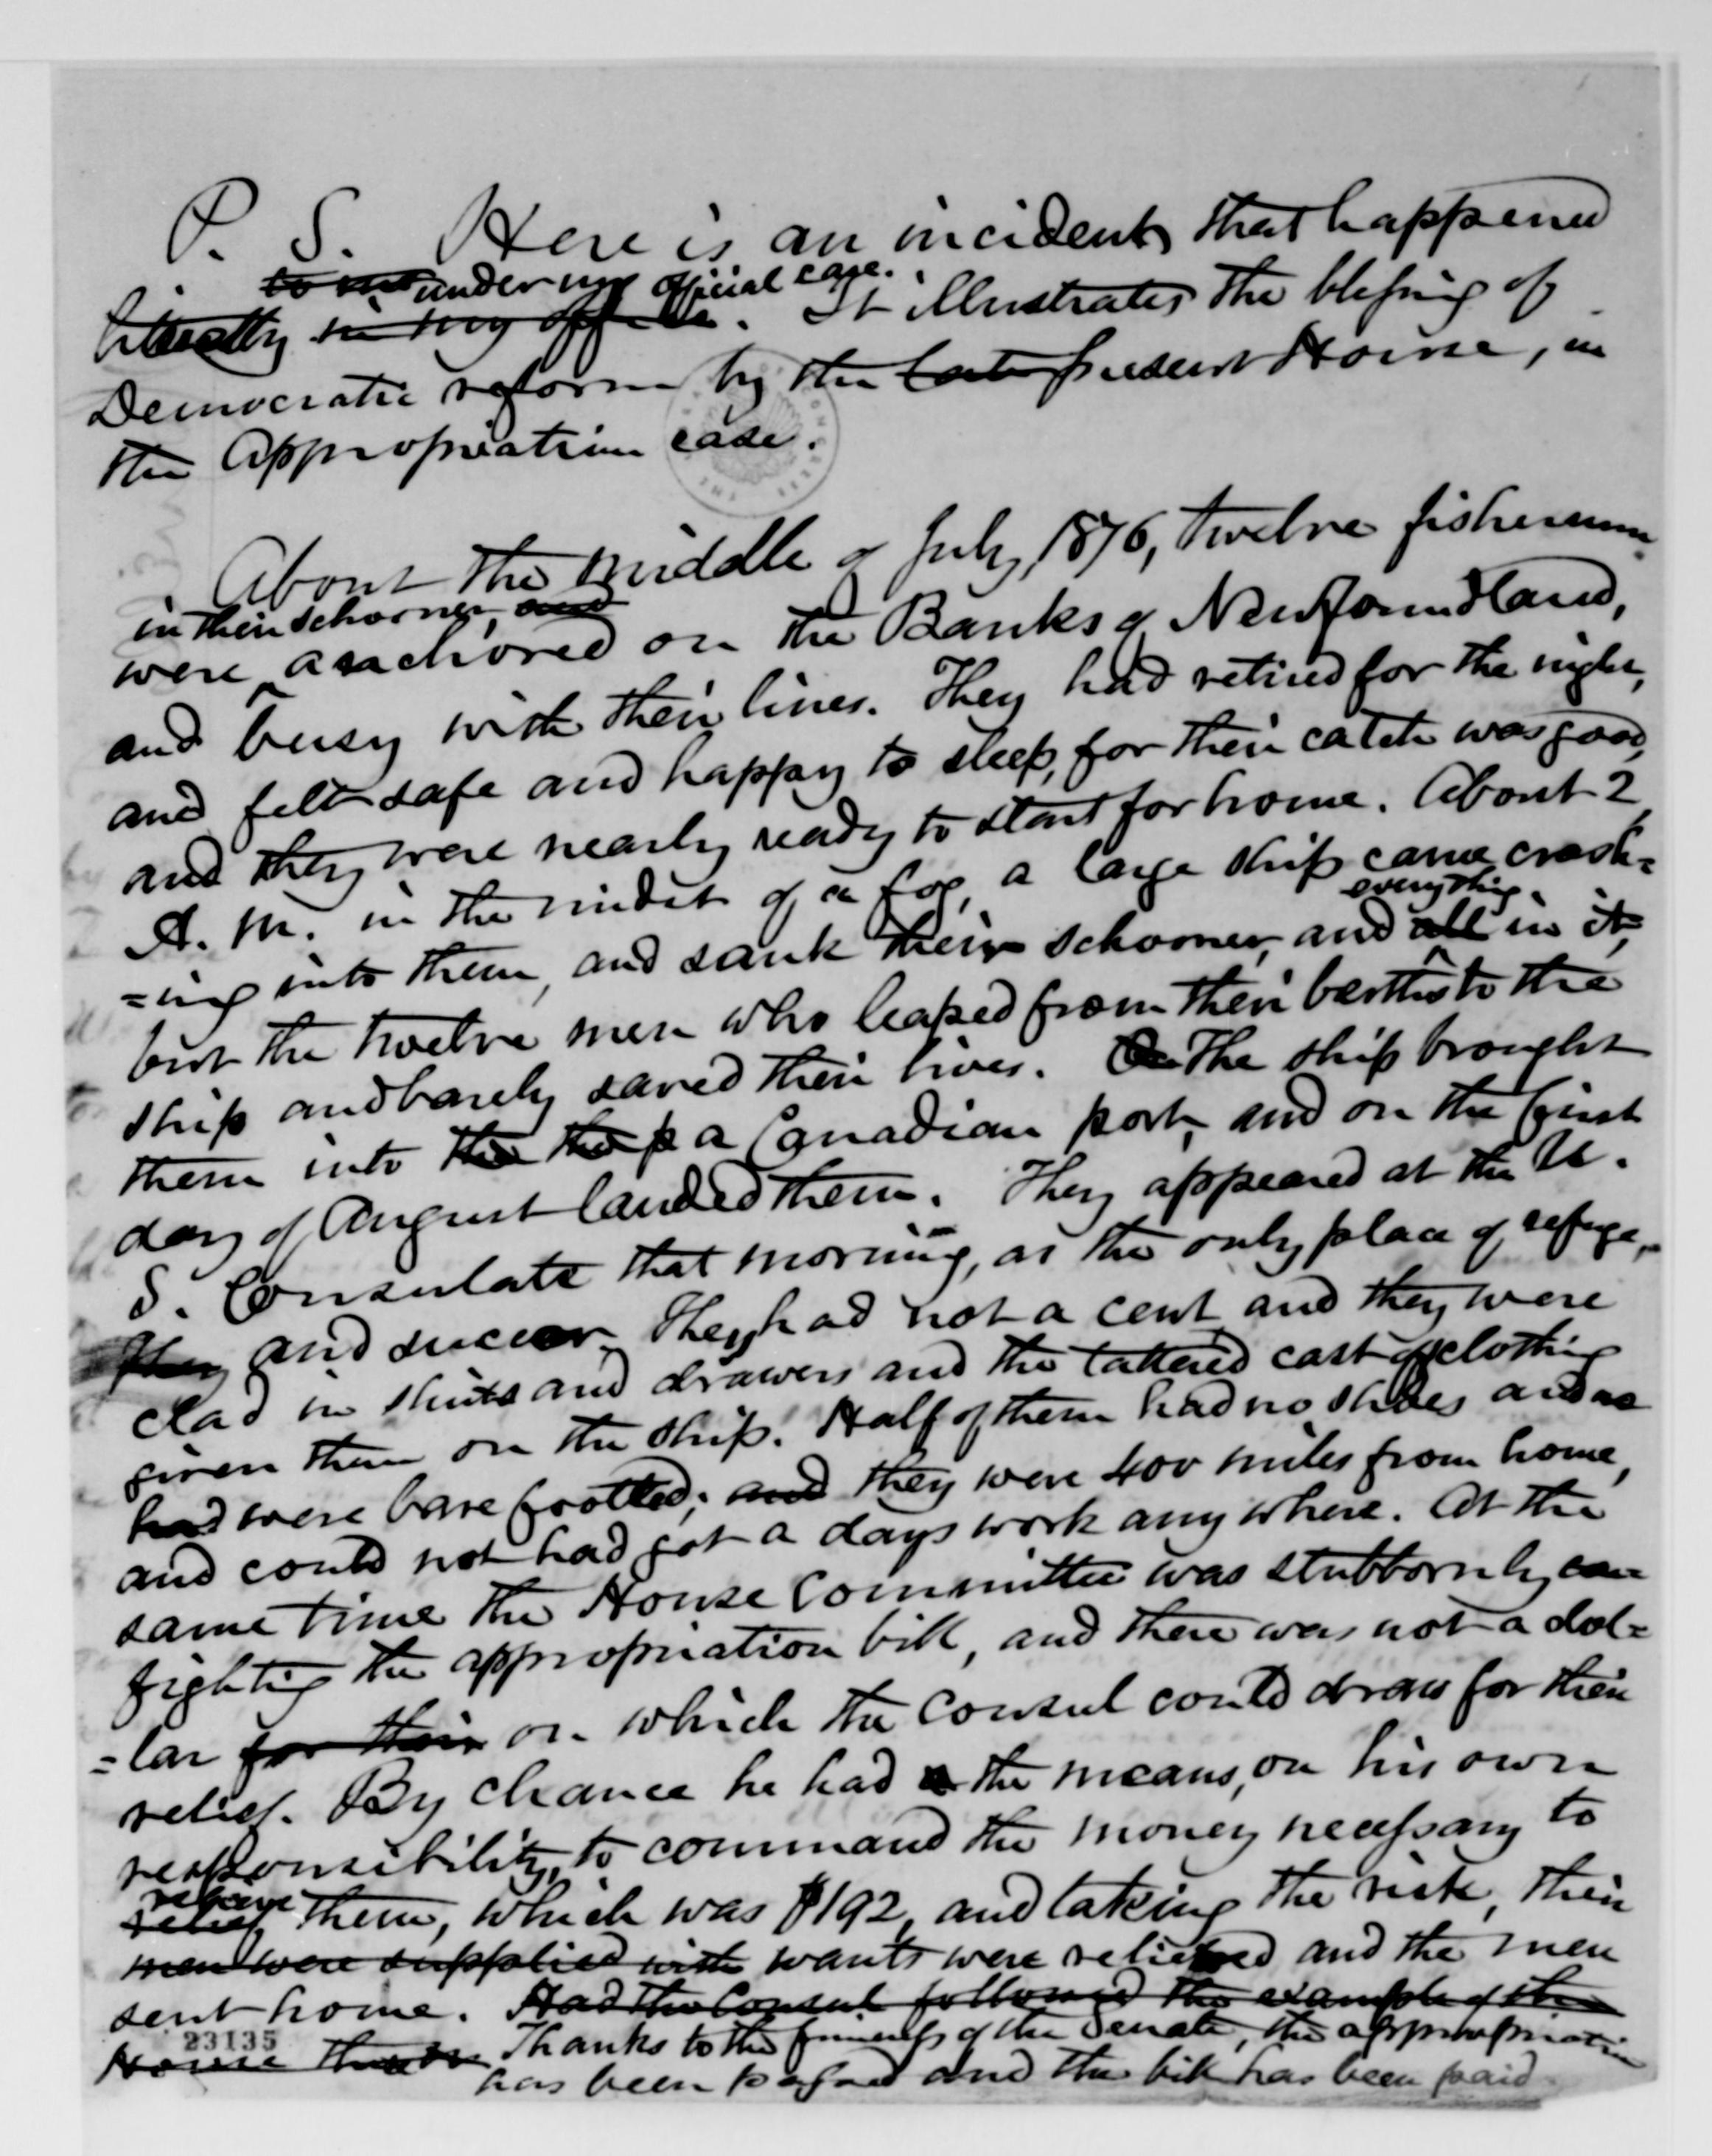 P. S. Here is an incident that happened
to me under my official care.
literally in my office. It illustrates the blessing of
Democratic reform by the late present House, in
the Appropriation case.
About the middle of July, 1876, twelve fishermen
in their schooner, and
were anchored on the Banks of Newfoundland,
and busy with their lines. They had retired for the night,
and felt safe and happy to sleep, for their catch was good,
and they were nearly ready to start for home. About 2
A. M. in the midst of a fog, a large ship came crash=
everything
=ing into them, and sank their schooner, and all in it,
but the twelve men who leaped from their berths to the
ship and barely saved their lives. The ship brought
them into the the p a Canadian port, and on the first
day of August landed them. They appeared at the U.
S. Consulate that morning, as the only place of refuge,
they and succor. They had not a cent and they were
clad in shirts and drawers and the tattered cast off clothing
given them on the ship. Half of them had no shoes and
had were bare footted; and they were 400 miles from home,
and could not had got a days work any where. At the
same time the House Committee was stubbornly
fighting the appropriation bill, and there was not a dol=
=lar for their on which the Consul could draw for their
relief. By chance he had the means, on his own
responsibility, to command the money necessary to
relieve
relief them, which was $192, and taking the risk, their
men were supplied with wants were relieved and the men
sent home. Had the Consul followed the example of the
House Thanks to the firmness of the Senate, the appropriation
has been passed and the bill has been paid
23135